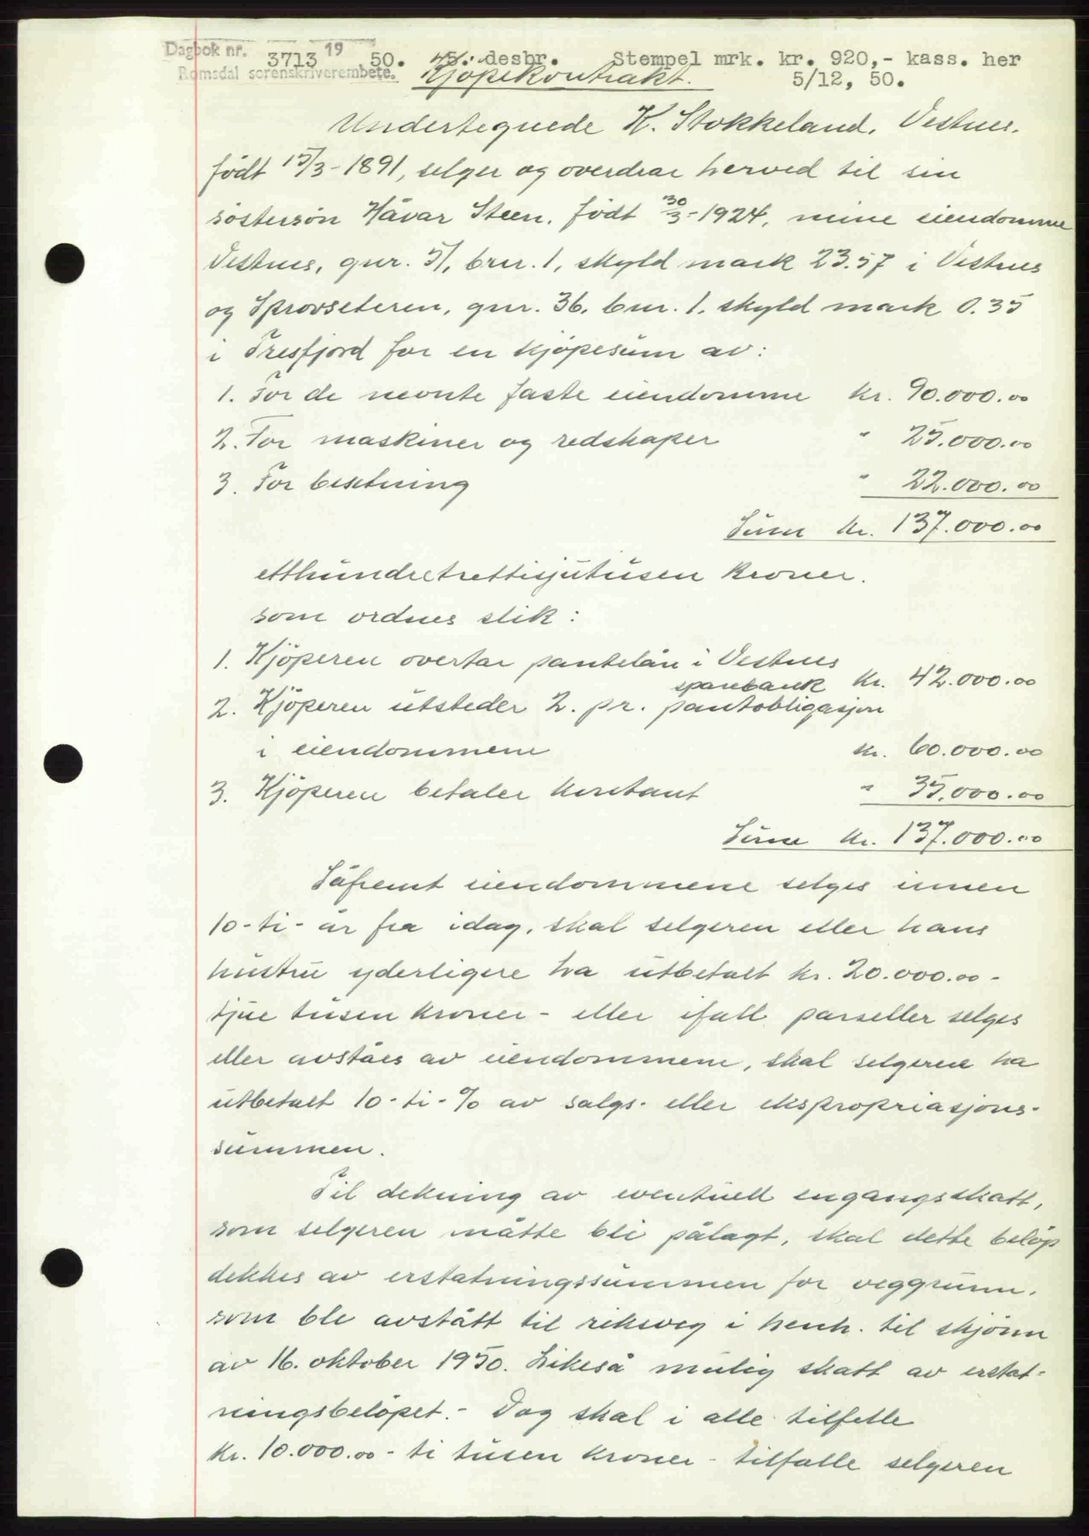 Dagbok nr. 3713 19 50. 5. desbr. Stempel mrk. kr. 920,- kass. her
Romsdal sorenskriverembete. 5/12, 50.
Kjöpekontrakt.
Undertegnede K. Stokkeland, Vestnes,
født 15/3-1891, selger og overdrar herved til sin
söstersön Håvar Steen, født 30/3-1924, mine eiendomme
Vestnes, gnr. 51, brnr. 1, skyld mark 23.57 i Vestnes
og Sprovseteren, gnr. 36, bnr. 1, skyld mark 0.35
i Tresfjord for en kjöpesum av:
1. For de nevnte faste eiendomme kr. 90.000.00
2. For maskiner og redskaper " 25.000.00
3. For besetning " 22.000.00
Sum kr. 137.000.00
etthundretrettisjutusen kroner.
som ordnes slik:
1. Kjöperen overtar pantelån i Vestnes
sparebank kr. 42.000.00
2. Kjöperen utsteder 2. pr. pantobligasjon
i eiendommene kr. 60.000.00
3. Kjöperen betaler kontant " 35.000.00
Sum kr. 137.000.00
Såfremt eiendommene selges innen
10-ti-år fra idag, skal selgeren eller hans
hustru yderligere ha utbetalt kr. 20.000.00 -
tjue tusen kroner - eller ifall parseller selges
eller avståes av eiendommene, skal selgeren ha
utbetalt 10-ti-% av salgs- eller ekspropriasjons-
summen.
Til dekning av eventuell engangsskatt,
som selgeren måtte bli pålagt, skal dette belöp
dekkes av erstatningssummen for veggrunn,
som ble avstått til riksveg i henh. til skjönn
av 16. oktober 1950. Likeså mulig skatt av erstat-
ningsbelöpet. - Dog skal i alle tilfelle
kr. 10.000.00 - ti tusen kroner - tilfalle selgeren